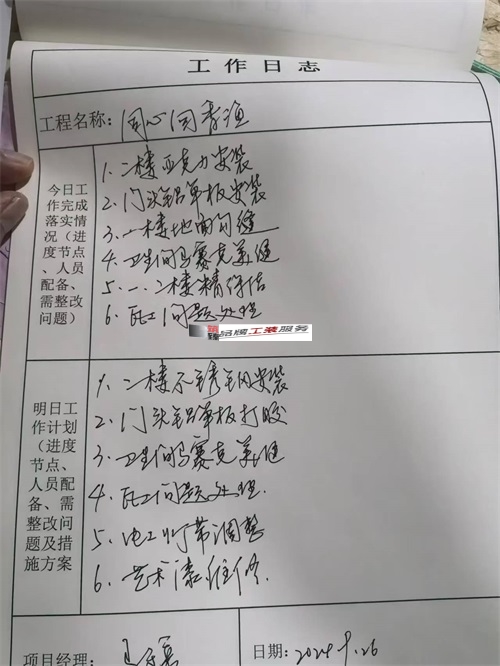 工作日志
工程名称: 同心同素渔
今日工作完成落实情况（进度节点、人员配备、需整改问题）
1. 二楼亚克力安装
2. 门头铝单板安装
3. 一楼地面勾缝
4. 卫生间马赛克美缝
5. 一.二楼精保洁
6. 瓦工问题处理
品牌工装服务
明日工作计划（进度节点、人员配备、需整改问题及措施方案
1. 二楼不锈钢安装
2. 门头铝单板打胶
3. 卫生间马赛克美缝
4. 瓦工问题处理.
5. 电工灯带调整
6. 艺术漆维修.
项目经理:
日期: 2024.9.26